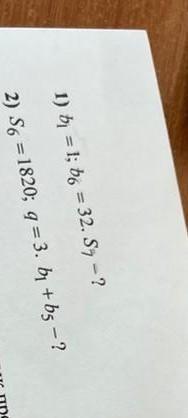 1) b₁ = 1; b₆ = 32. S₇ – ?
2) S₆ = 1820; q = 3. b₁ + b₅ – ?